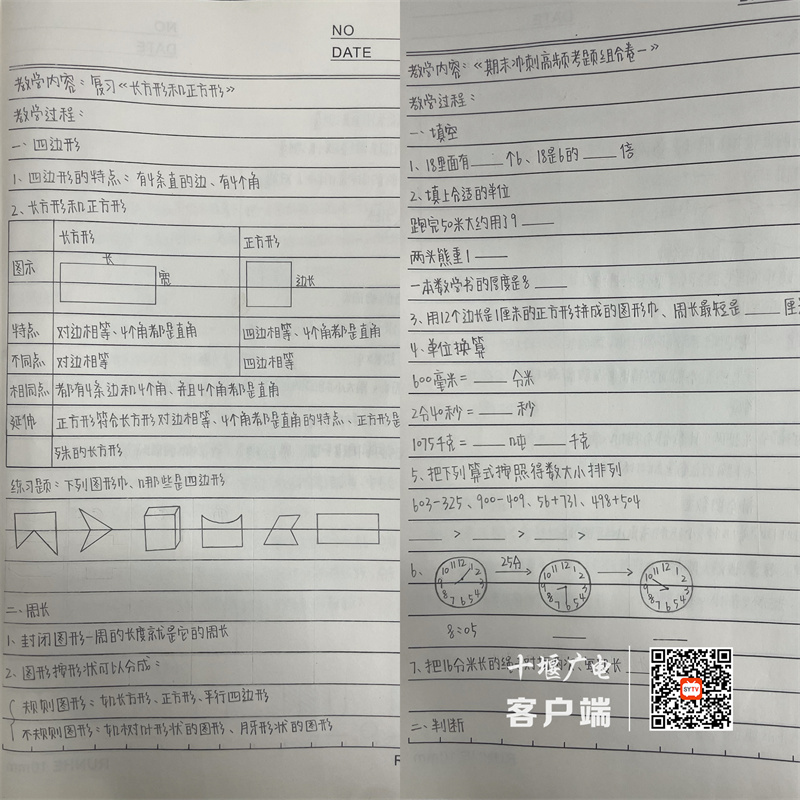 NO
DATE
教学内容：复习《长方形和正方形》
教学过程：
一、四边形
1、四边形的特点：有4条直的边、有4个角
2、长方形和正方形
长方形 正方形
图示 长 宽 边长
特点 对边相等、4个角都是直角 四边相等、4个角都是直角
不同点 对边相等 四边相等
相同点 都有4条边和4个角、并且4个角都是直角
延伸 正方形符合长方形对边相等、4个角都是直角的特点、正方形是
殊的长方形
练习题：下列图形中、哪些是四边形
二、周长
1、封闭图形一周的长度就是它的周长
2、图形按形状可以分成：
规则图形：如长方形、正方形、平行四边形
不规则图形：如树叶形状的图形、月牙形状的图形
教学内容：《期末冲刺高频考题组合卷一》
教学过程：
一、填空
1、18里面有____个6、18是6的____倍
2、填上合适的单位
跑完50米大约用了9____
两头熊重1____
一本数学书的厚度是8____
3、用12个边长是1厘米的正方形拼成的图形中、周长最短是____厘米
4、单位换算
600毫米=____分米
2分40秒=____秒
1075千克=____吨____千克
5、把下列算式按照得数大小排列
603-325、900-409、56+731、498+504
____>____>____>____
6、 25分
8:05
7、把16分米长的绳
二、判断
十堰广电
客户端
SYTV